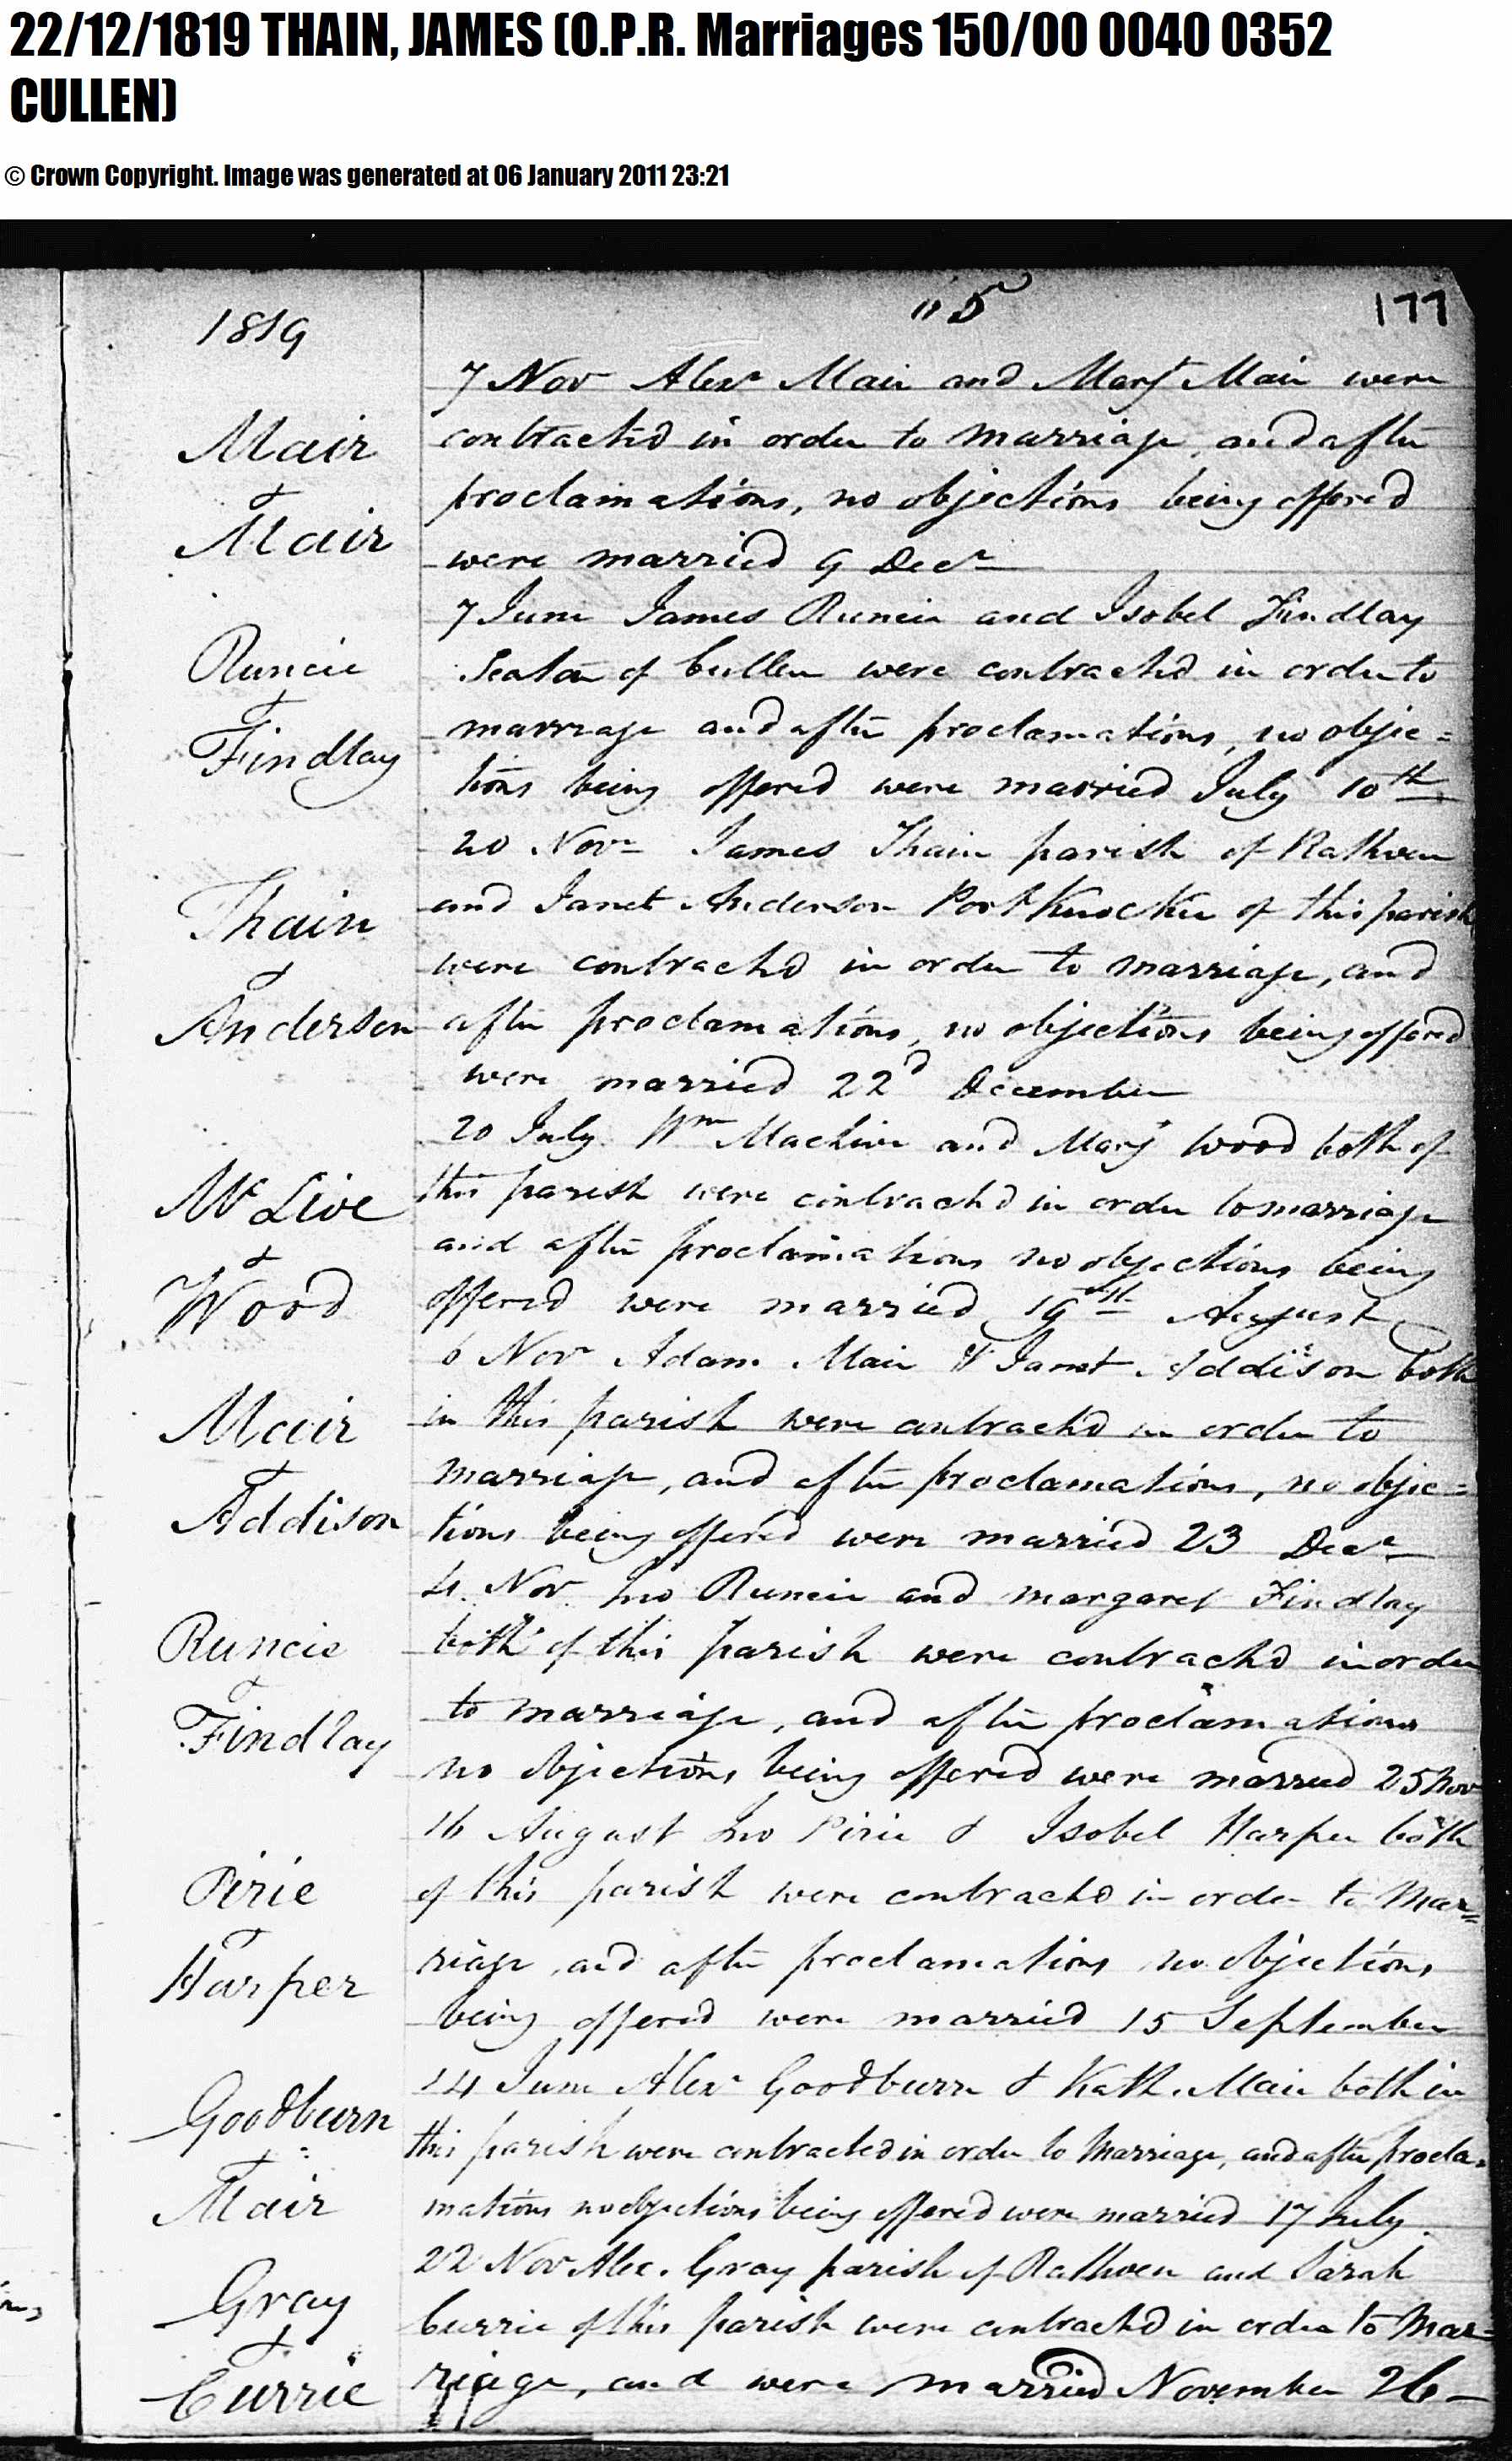 22/12/1819 THAIN, JAMES (O.P.R. Marriages 150/00 0040 0352
CULLEN)
© Crown Copyright. Image was generated at 06 January 2011 23:21
177
1819
7 Nov Alexr Mair and Mary Mair were
Mair
&
Mair
contracted in order to marriage, and after
proclamations, no objections being offered
were married 9 Decr
Runcie
&
Findlay
7 June James Runcie and Isobel Findlay
Seatown of Cullen were contracted in order to
marriage and after proclamations, no objec=
tions being offered were married July 10th
Thain
&
Anderson
20 Novr James Thain parish of Rathven
and Janet Anderson PortKnockie of this parish
were contracted in order to marriage, and
after proclamations, no objections being offered
were married 22d December
McLive
&
Wood
20 July Wm Maclive and Mary Wood both of
this parish were contracted in order to marriage
and after proclamations no objections being
offered were married 19th August
Mair
&
Addison
6 Nov Adam Mair & Janet Addison both
in this parish were contracted in order to
marriage, and after proclamations, no objec=
tions being offered were married 23 Decr
Runcie
&
Findlay
4 Nov Jno Runcie and margaret Findlay
both of this parish were contracted in order
to marriage, and after proclamations
no objections being offered were married 25 Nov
Pirie
&
Harper
16 August Jno Pirie & Isobel Harper both
of this parish were contracted in order to Mar=
riage, and after proclamations no objections
being offered were married 15 September
Goodburn
&
Mair
14 June Alexr Goodburn & Kath. Mair both in
this parish were contracted in order to Marriage, and after procla=
mations no objections being offered were married 17 July.
Gray
&
Currie
22 Nov Alex. Gray parish of Rathven and Sarah
Currie of this parish were contracted in order to Mar=
riage, and were married November 26